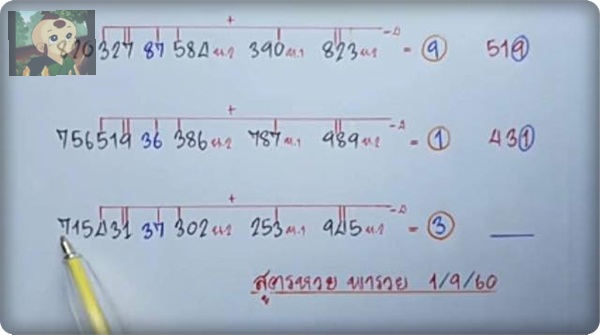 +
-△
820327 87 584 น.2 390 น.1 823 น.2 = 9 519
+
-△
756519 36 386 น.2 787 น.1 989 น.2 = 1 431
+
-△
715431 37 302 น.2 253 น.1 945 น.2 = 3
สูตรหวย พารวย 1/9/60